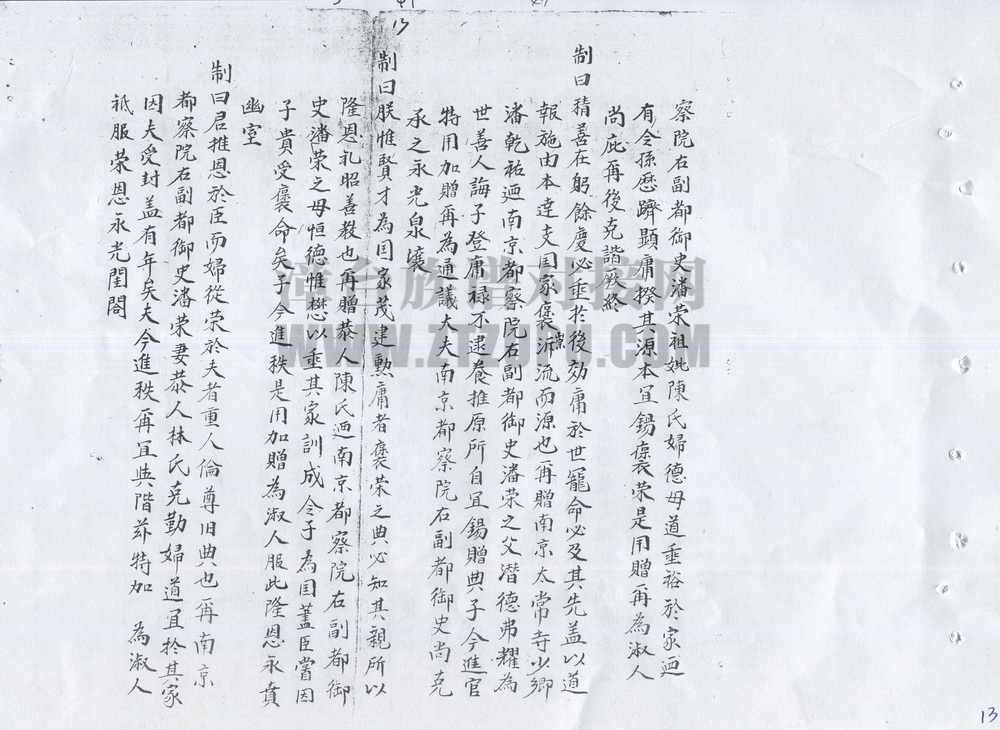 13
察院右副都御史潘荣祖妣陳氏婦德母道垂裕於家迺
有令孫歷躋顯庸揆其源本宜錫褒荣是用贈再為淑人
尚庇再後克諧厥終
制曰積善在躬餘慶必垂扵後効庸於世寵命必及其先盖以道
報施由本達支国家褒泝流而源也再贈南京太常寺少卿
潘乾祐迺南京都察院右副都御史潘荣之父潜德弗耀為
世善人誨子登庸禄不逮養推原所自宜錫贈典子今進官
特用加贈再為通議大夫南京都察院右副都御史尚克
承之永光泉壤
制曰朕惟賢才為国家茂建勲庸者褒荣之典必知其親所以
隆恩礼昭善教也再贈恭人陳氏迺南京都察院右副都御
史潘荣之母恒德惟懋以垂其家訓成令子為国藎臣嘗因
子貴受褒命矣子今進秩是用加贈為淑人服此隆恩永賁
幽室
制曰君推恩於臣而婦從荣於夫者重人倫尊旧典也再南京
都察院右副都御史潘荣妻恭人林氏克勤婦道宜扵其家
因夫受封盖有年矣夫今進秩再宜與階茲特加 為淑人
祗服荣恩永光閨閤
漳台族谱对接网
WWW.ZZZUPU.COM
13